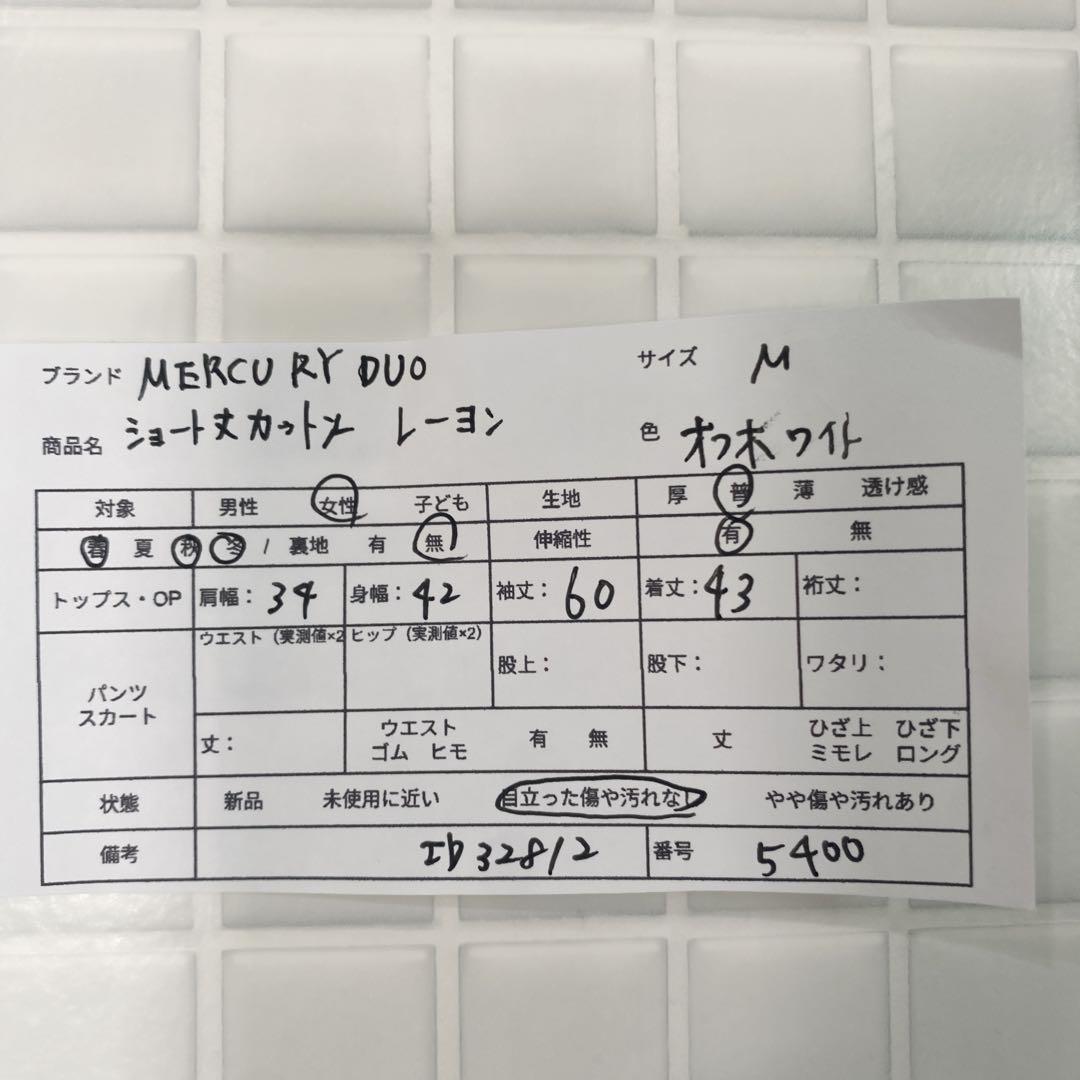 ブランド MERCURY DUO サイズ M
商品名 ショート丈カットソー レーヨン 色 オフホワイト
対象 男性 女性 子ども 生地 厚 普 薄 透け感
春 夏 秋 冬 / 裏地 有 無 伸縮性 有 無
トップス・OP 肩幅: 34 身幅: 42 袖丈: 60 着丈: 43 裄丈:
ウエスト (実測値×2 ヒップ (実測値×2)
パンツ スカート 股上: 股下: ワタリ:
丈: ウエスト ゴム ヒモ 有 無 丈 ひざ上 ひざ下 ミモレ ロング
状態 新品 未使用に近い 目立った傷や汚れなし やや傷や汚れあり
備考 ID32812 番号 5400